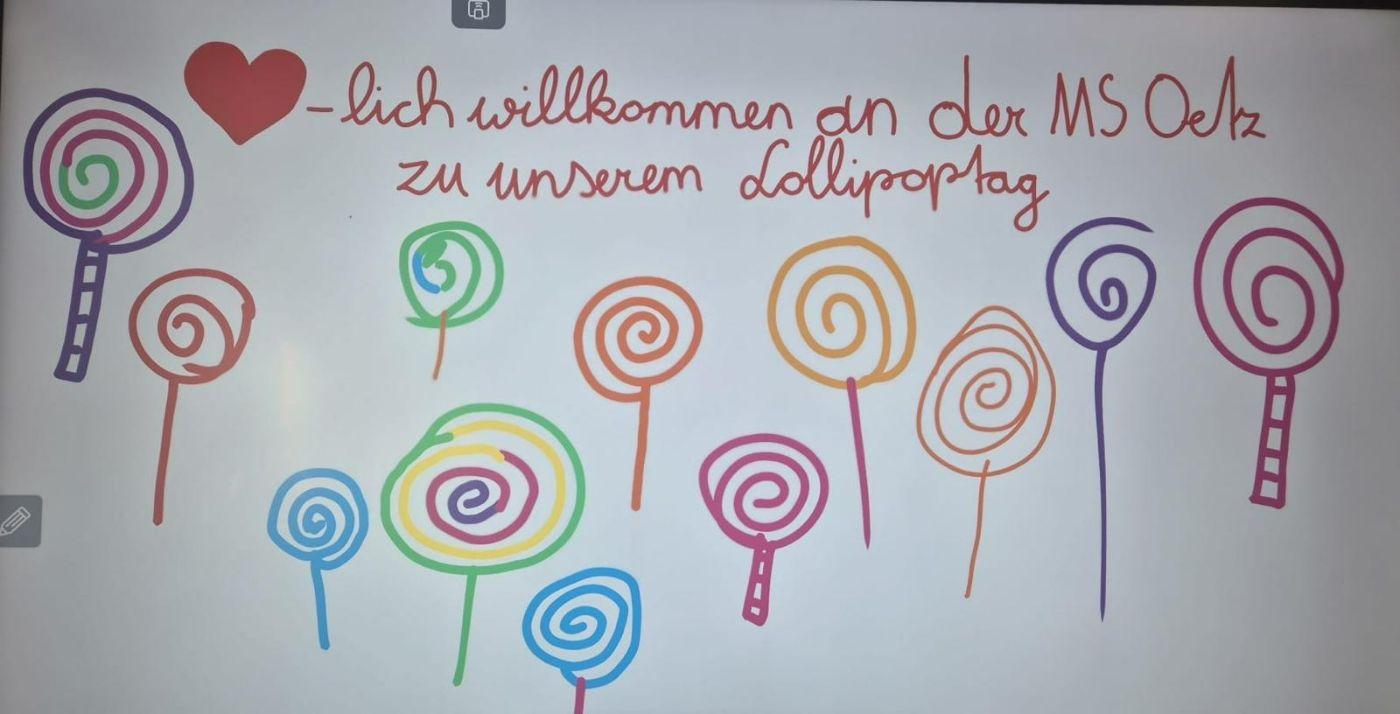 -lich willkommen an der MS Oetz
zu unserem Lollipoptag